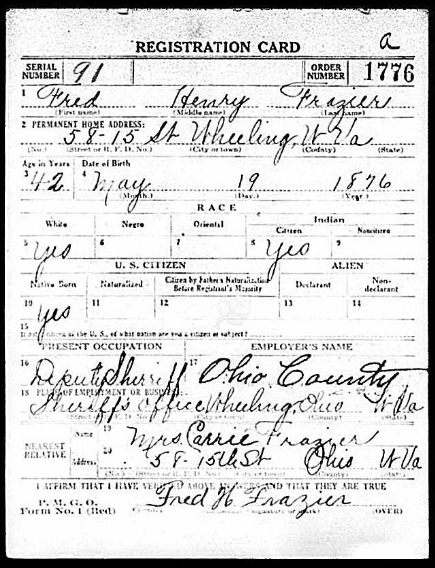 a
REGISTRATION CARD
SERIAL NUMBER 91 ORDER NUMBER 1776
1 Fred Henry Frazier
(First name) (Middle name) (Last name)
2 PERMANENT HOME ADDRESS:
58-15 St Wheeling, W Va
(No.) (Street or R. F. D. No.) (City or town) (County) (State)
Age in Years Date of Birth
3 42 4 May 19 1876
(Month.) (Day.) (Year.)
RACE
White Negro Oriental Indian
Citizen Noncitizen
5 yes 6 7 8 yes 9
U. S. CITIZEN ALIEN
Native Born Naturalized Citizen by Father's Naturalization Before Registrant's Majority Declarant Non-declarant
10 yes 11 12 13 14
15
If not a citizen of the U. S., of what nation are you a citizen or subject?
PRESENT OCCUPATION EMPLOYER'S NAME
16 Deputy Sherriff 17 Ohio County
18 PLACE OF EMPLOYMENT OR BUSINESS:
Sheriffs office Wheeling, Ohio W Va
NEAREST RELATIVE Name 19 Mrs. Carrie Frazier
Address 20 58-15th St Ohio W Va
(No.) (Street or R. F. D. No.) (City or town) (County) (State)
I AFFIRM THAT I HAVE VERIFIED ABOVE ANSWERS AND THAT THEY ARE TRUE
P. M. G. O.
Form No. 1 (Red) Fred H Frazier
(Registrant's signature or mark) (OVER)